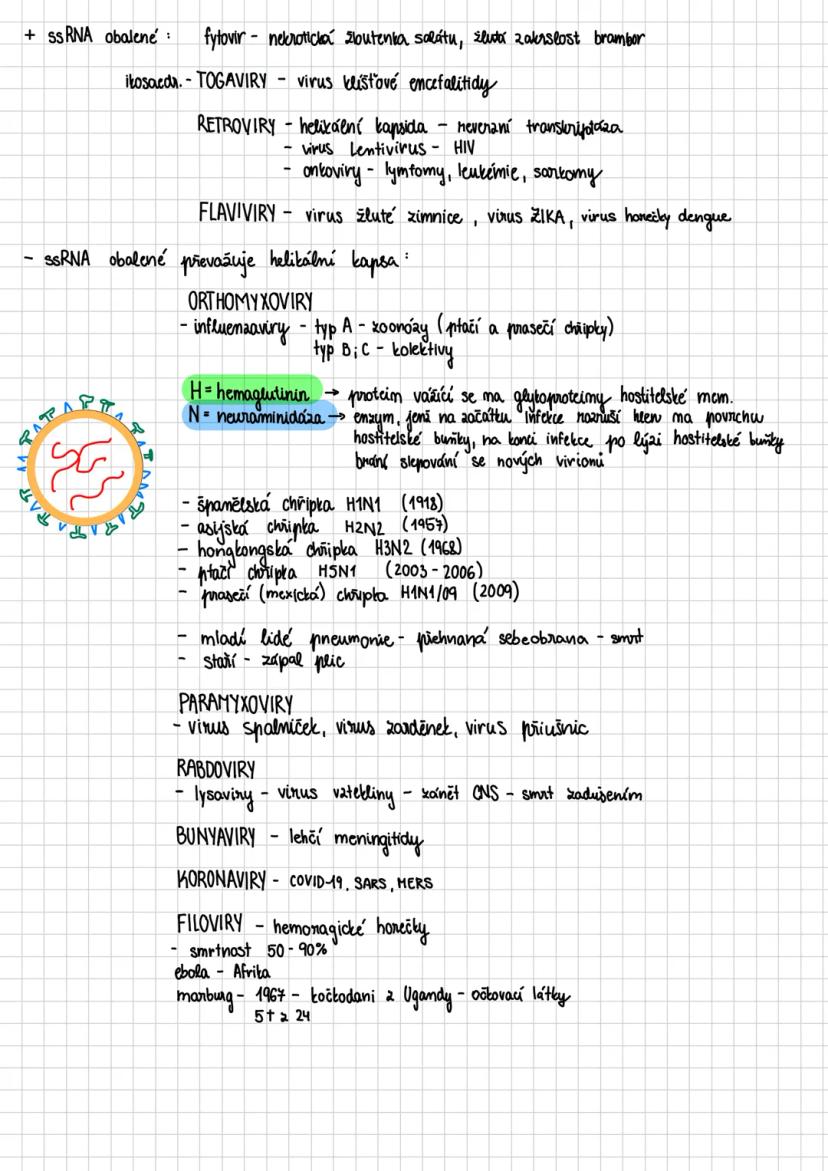 + ssRNA obalené: fytovir - nekrotická žloutenka salátu, žlutá zakrslost brambor
ikosaedr. - TOGAVIRY - virus klíšťové encefalitidy
RETROVIRY - helikální kapsida - reverzní transkriptáza
- virus Lentivirus - HIV
- onkoviry - lymfomy, leukémie, sarkomy
FLAVIVIRY - virus žluté zimnice, virus ZIKA, virus horečky dengue
- ssRNA obalené převažuje helikální kapsa:
ORTHOMYXOVIRY
- influenzaviry - typ A - zoonózy (ptačí a prasečí chřipky)
typ B i C - kolektivy
H = hemaglutinin → protein vážící se na glykoproteiny hostitelské mem.
N = neuraminidáza → enzym, jenž na začátku infekce rozruší hlen na povrchu
hostitelské buňky, na konci infekce po lýzi hostitelské buňky
brání slepování se nových virionů
- španělská chřipka H1N1 (1918)
- asijská chřipka H2N2 (1957)
- hongkongská chřipka H3N2 (1968)
- ptačí chřipka H5N1 (2003-2006)
- prasečí (mexická) chřipka H1N1/09 (2009)
- mladí lidé pneumonie - přehnaná sebeobrana - smrt
- staří - zápal plic
PARAMYXOVIRY
- virus spalniček, virus zarděnek, virus příušnic
RABDOVIRY
- lysaviry - virus vztekliny - zánět CNS - smrt zadušením
BUNYAVIRY - lehčí meningitidy
KORONAVIRY - COVID-19, SARS, MERS
FILOVIRY - hemoragické horečky
- smrtnost 50-90%
ebola - Afrika
marburg - 1967 - kočkodani z Ugandy - očkovací látky
5† z 24